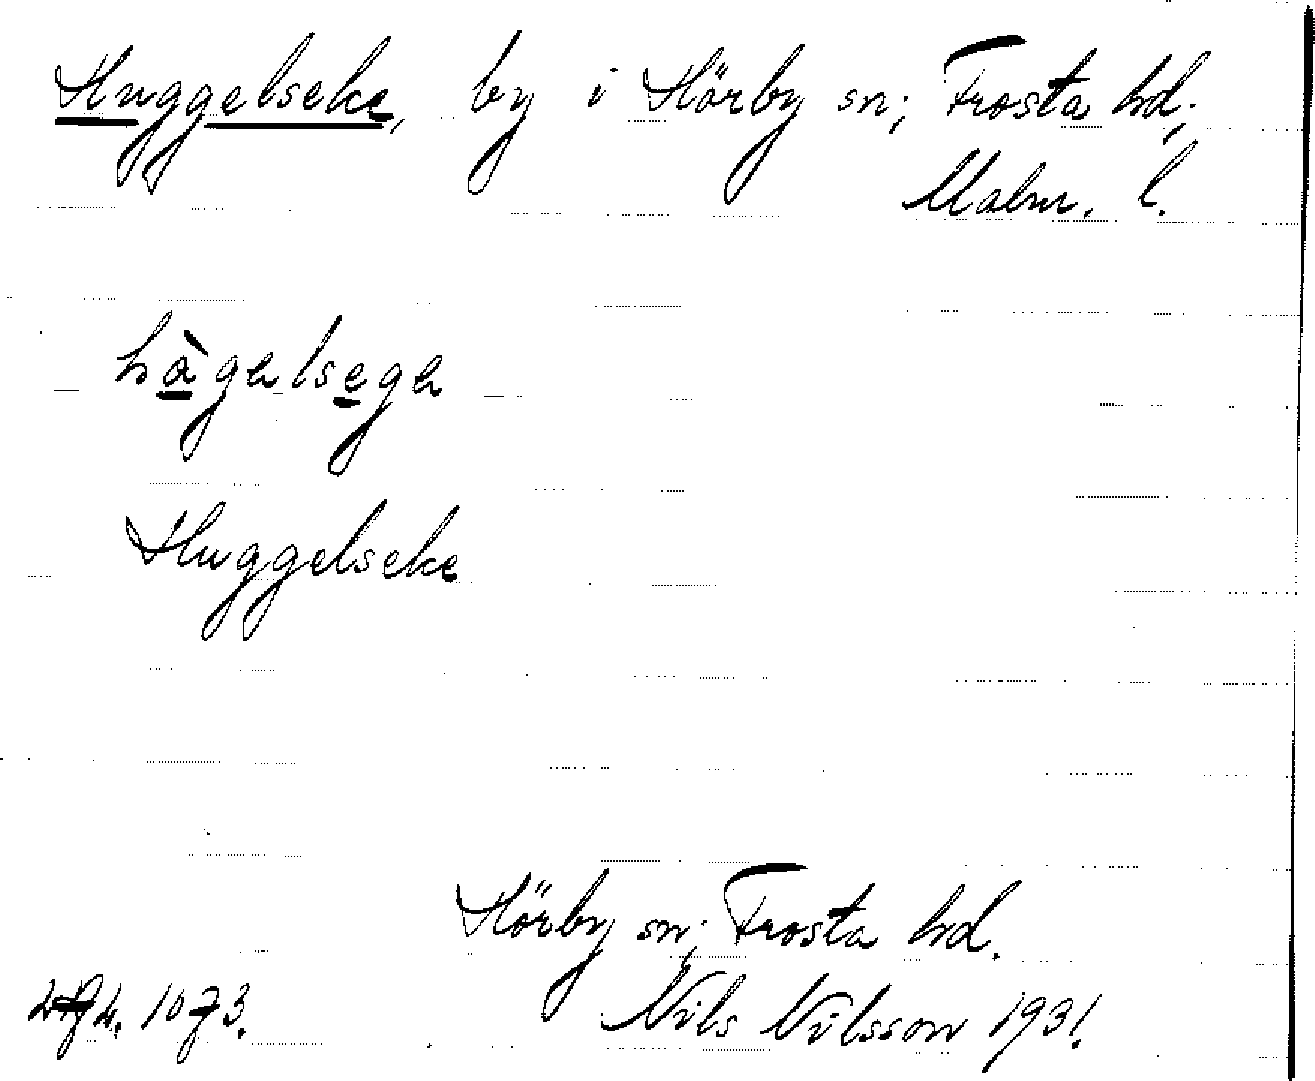 Huggelseke, by i Hörby sn; Frosta hd;
Malm. l.
hàgəlsegə
Huggelseke
Hörby sn; Frosta hd.
Nils Nilsson 1931.
1073.